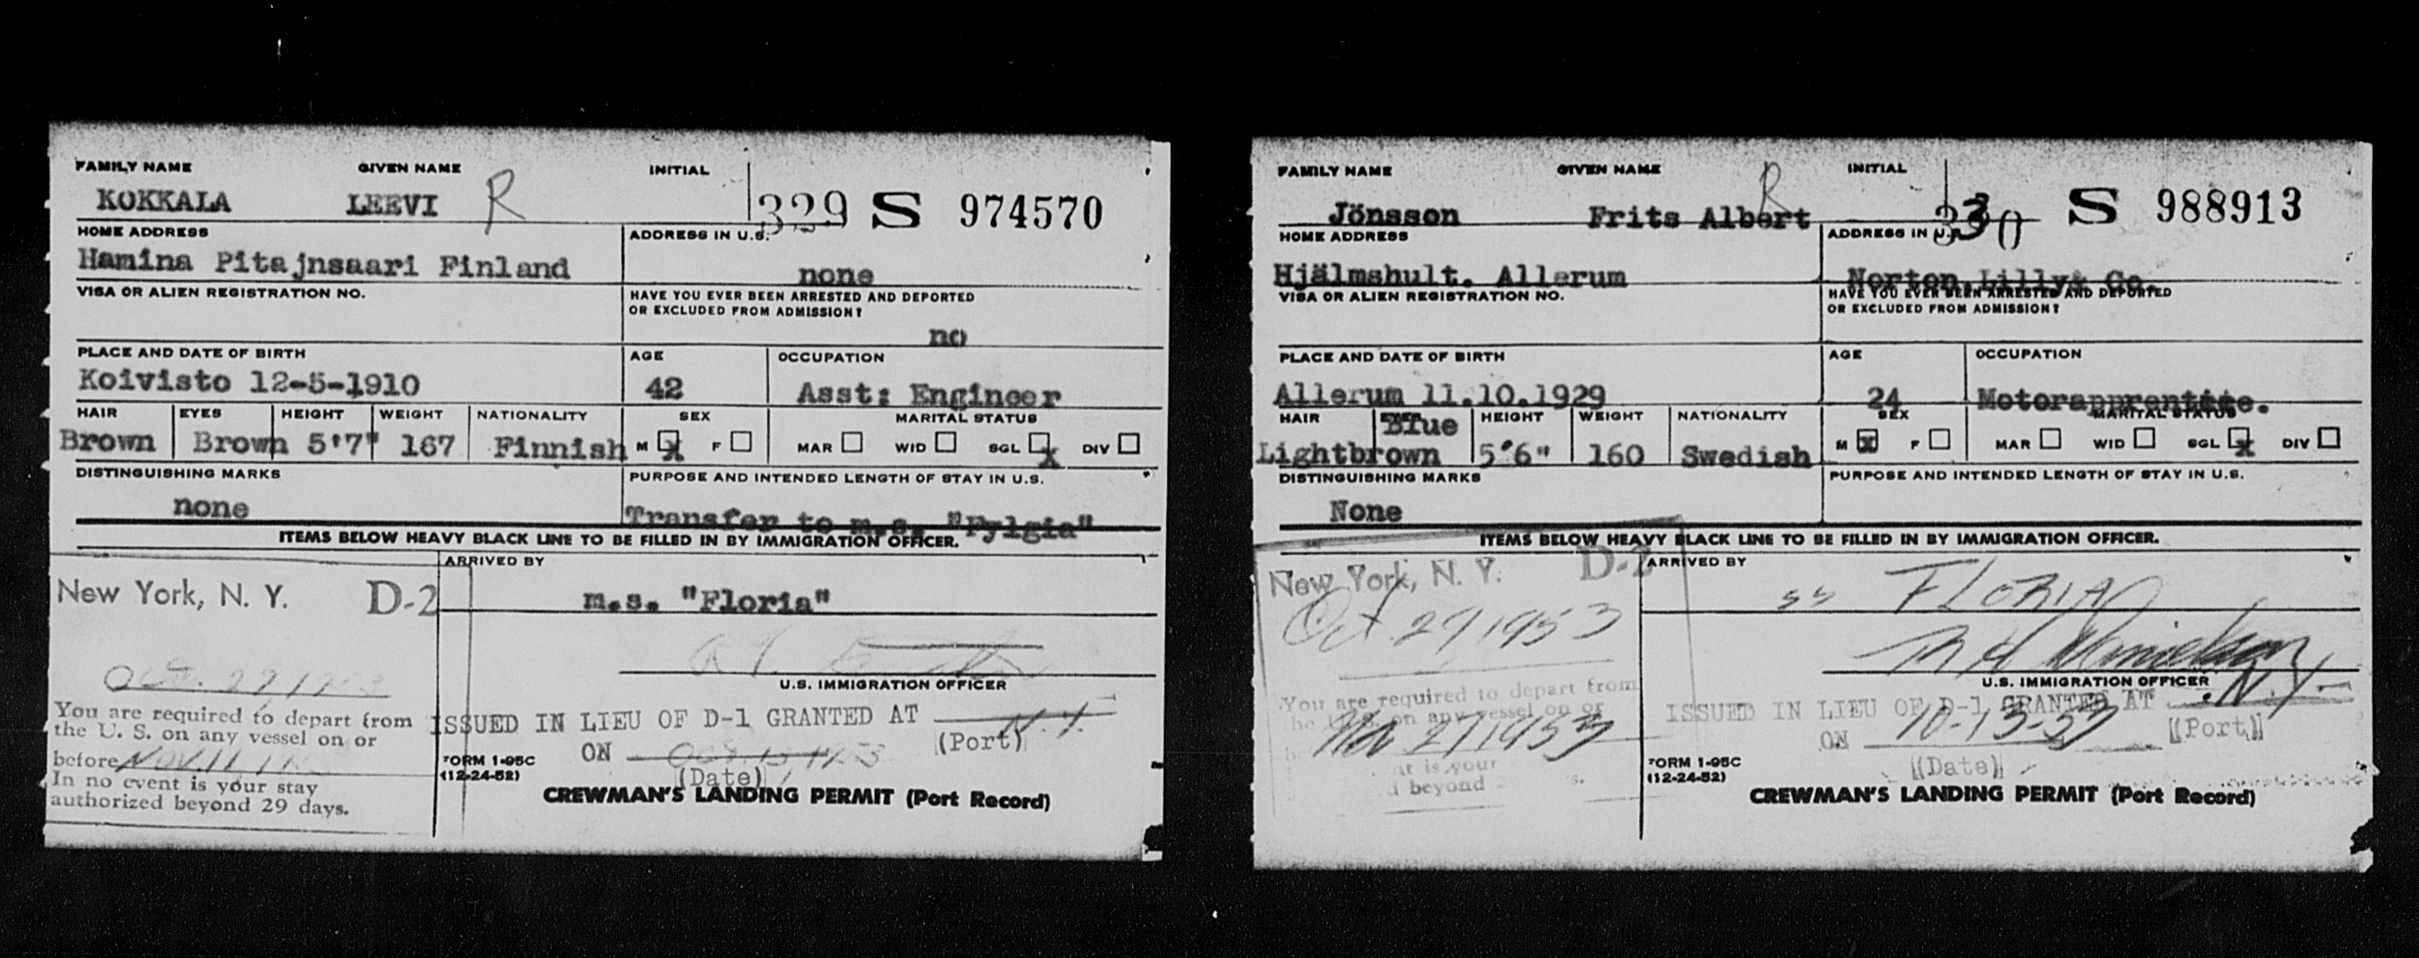 FAMILY NAME GIVEN NAME INITIAL
KOKKALA LEEVI R 329 S 974570
HOME ADDRESS ADDRESS IN U.S.
Hamina Pitajnsaari Finland none
VISA OR ALIEN REGISTRATION NO. HAVE YOU EVER BEEN ARRESTED AND DEPORTED
OR EXCLUDED FROM ADMISSION?
no
PLACE AND DATE OF BIRTH AGE OCCUPATION
Koivisto 12-5-1910 42 Asst: Engineer
HAIR EYES HEIGHT WEIGHT NATIONALITY SEX MARITAL STATUS
Brown Brown 5'7" 167 Finnish M X F MAR WID SGL X DIV
DISTINGUISHING MARKS PURPOSE AND INTENDED LENGTH OF STAY IN U.S.
none Transfer to m.s. "Fylgia"
ITEMS BELOW HEAVY BLACK LINE TO BE FILLED IN BY IMMIGRATION OFFICER.
ARRIVED BY
New York, N. Y. D-2 m.s. "Floria"
Oct. 27 1953
U.S. IMMIGRATION OFFICER
You are required to depart from
the U. S. on any vessel on or
before Nov 11
In no event is your stay
authorized beyond 29 days.
ISSUED IN LIEU OF D-1 GRANTED AT N.Y.
(Port)
ON Oct. 13 1953
(Date)
FORM I-95C
(12-24-52)
CREWMAN'S LANDING PERMIT (Port Record)
FAMILY NAME GIVEN NAME INITIAL
Jönsson Frits Albert R 330 S 988913
HOME ADDRESS ADDRESS IN U.S.
Hjälmshult. Allerum Norton, Lilly & Co.
VISA OR ALIEN REGISTRATION NO. HAVE YOU EVER BEEN ARRESTED AND DEPORTED
OR EXCLUDED FROM ADMISSION?
PLACE AND DATE OF BIRTH AGE OCCUPATION
Allerum 11.10.1929 24 Motorapprentice.
HAIR EYES HEIGHT WEIGHT NATIONALITY SEX MARITAL STATUS
Blue
Lightbrown 5'6" 160 Swedish M x F MAR WID SGL x DIV
DISTINGUISHING MARKS PURPOSE AND INTENDED LENGTH OF STAY IN U.S.
None
ITEMS BELOW HEAVY BLACK LINE TO BE FILLED IN BY IMMIGRATION OFFICER.
New York, N. Y. D-2 ARRIVED BY
ss FLORIA
Oct 27 1953
U.S. IMMIGRATION OFFICER
You are required to depart from
the U. S. on any vessel on or
Nov 27 1953
is your
beyond
ISSUED IN LIEU OF D-1 GRANTED AT N.Y.
(Port)
ON 10-13-53
(Date)
FORM I-95C
(12-24-52)
CREWMAN'S LANDING PERMIT (Port Record)